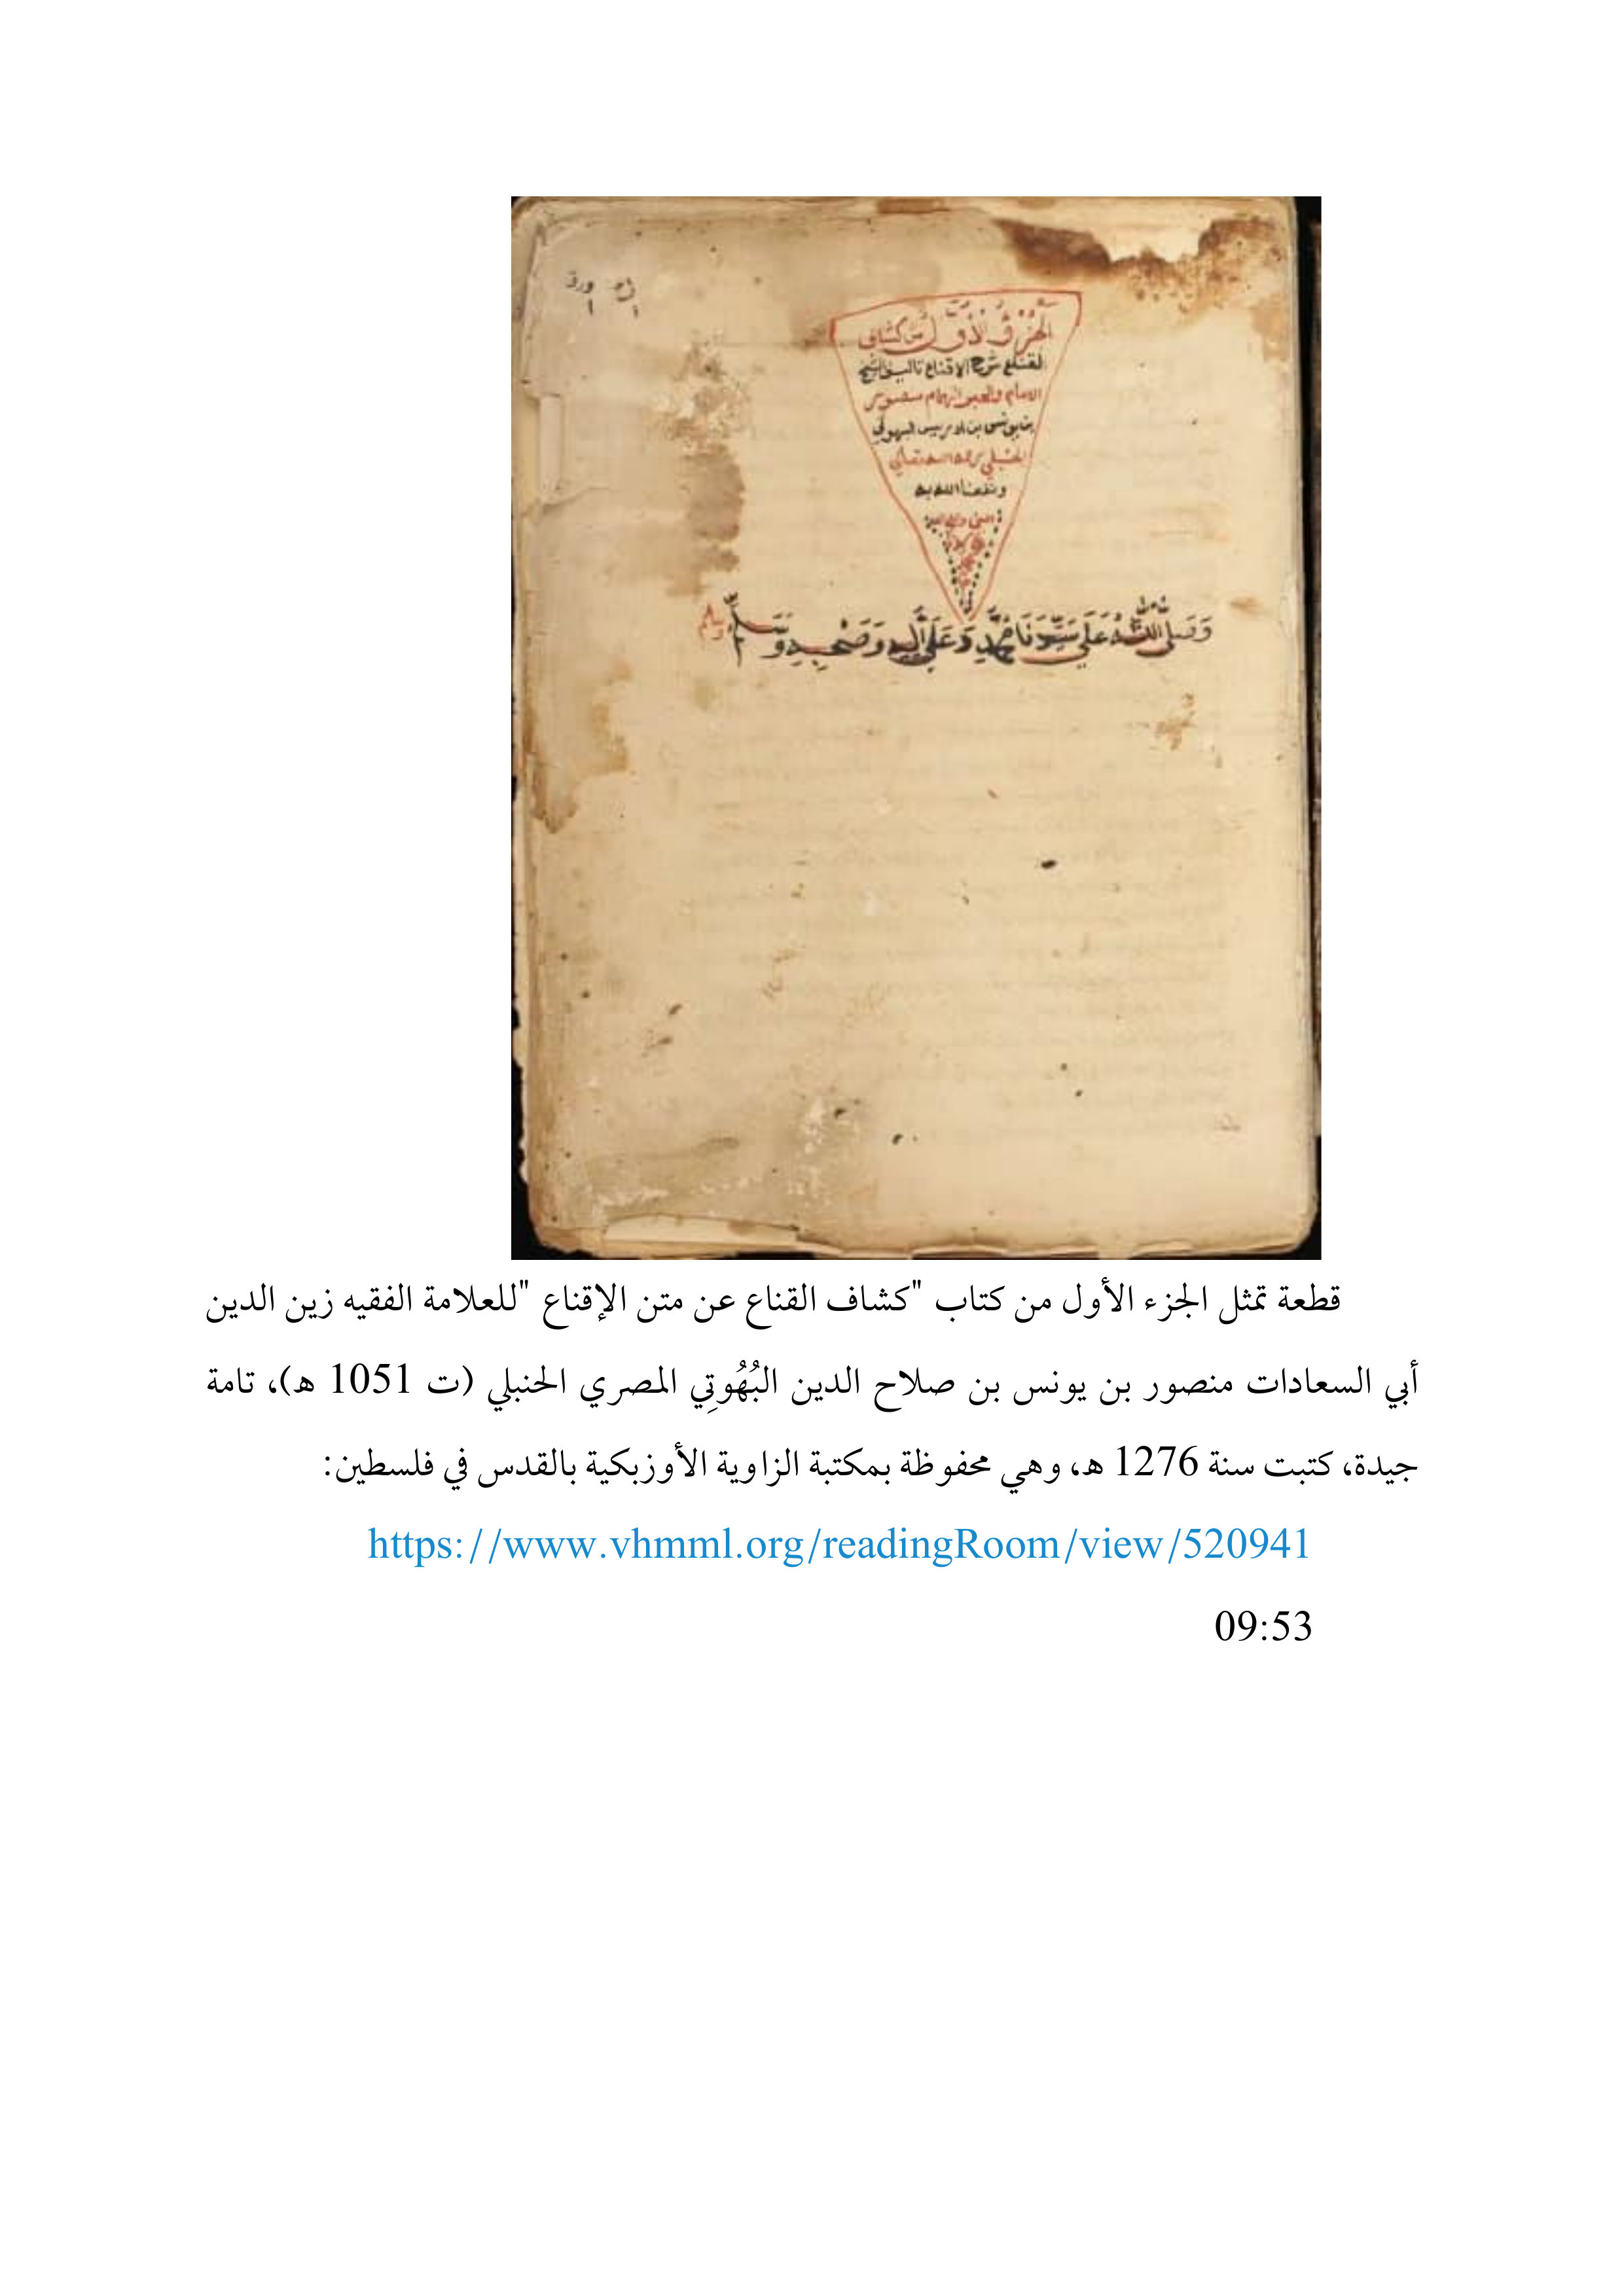 الجزؤ الأول من كشاف
القناع شرح الاقناع تاليف الشيخ
الامام والحبر الهمام منصور
بن يونس بن ادريس البهوتي
الحنبلي رحمه الله تعالي
ونفعنا الله به
وَصَلى اللهُ عَلي سَيِّدنَا مُحَمَّدٍ وَعَلَي آلِهِ وَصَحْبِهِ وَسَلم
قطعة تمثل الجزء الأول من كتاب "كشاف القناع عن متن الإقناع "للعلامة الفقيه زين الدين
أبي السعادات منصور بن يونس بن صلاح الدين البُهُوتِي المصري الحنبلي (ت 1051 هـ)، تامة
جيدة، كتبت سنة 1276 هـ، وهي محفوظة بمكتبة الزاوية الأوزبكية بالقدس في فلسطين:
https://www.vhmml.org/readingRoom/view/520941
09:53